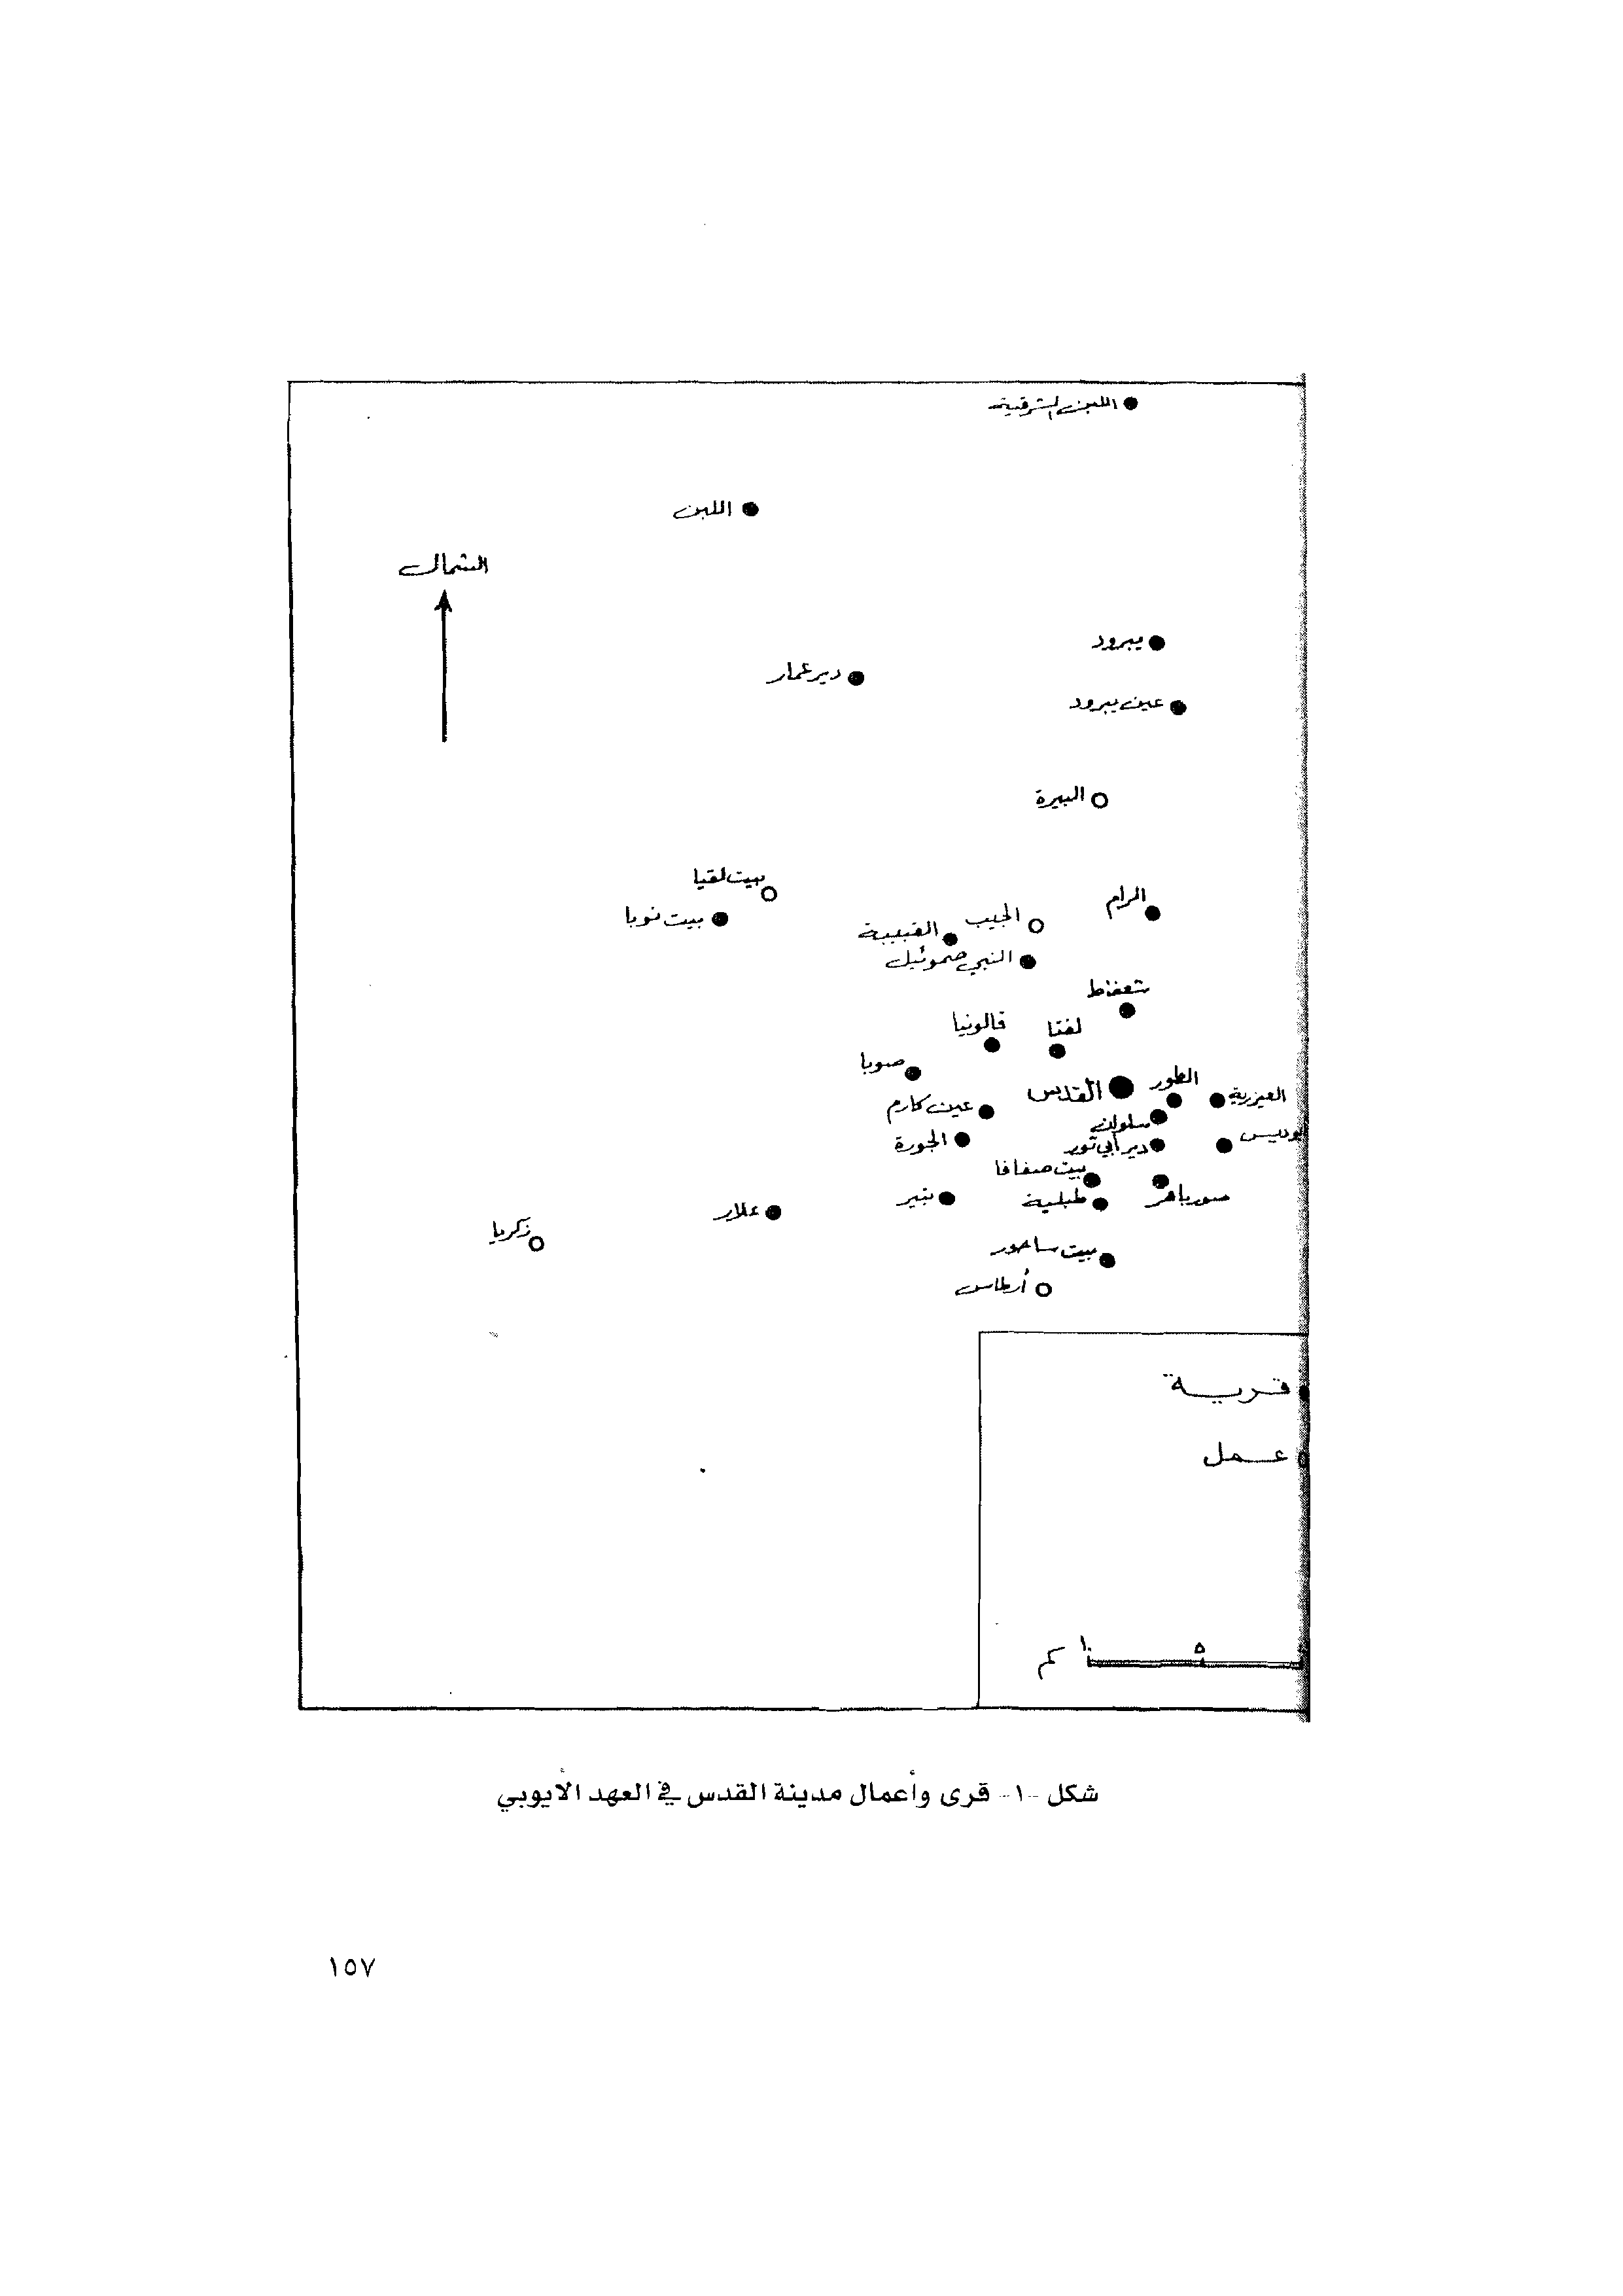 اللبن الشرقية
اللبن
الشمال
يبرود
دير عمار
عين يبرود
البيرة
بيت لقيا
الرام
بيت نوبا
الجيب
القبيبة
النبي صموئيل
شعفاط
قالونيا
لفتا
صوبا
الطور
القدس
العيزرية
عين كارم
سلوان
الجورة
دير أبي ثور
بيت صفافا
بتير
طبلية
صور باهر
علار
زكريا
بيت ساحور
أرطاس
قرية
عمل
٥
١٠ كم
شكل -١- قرى وأعمال مدينة القدس في العهد الأيوبي
١٥٧